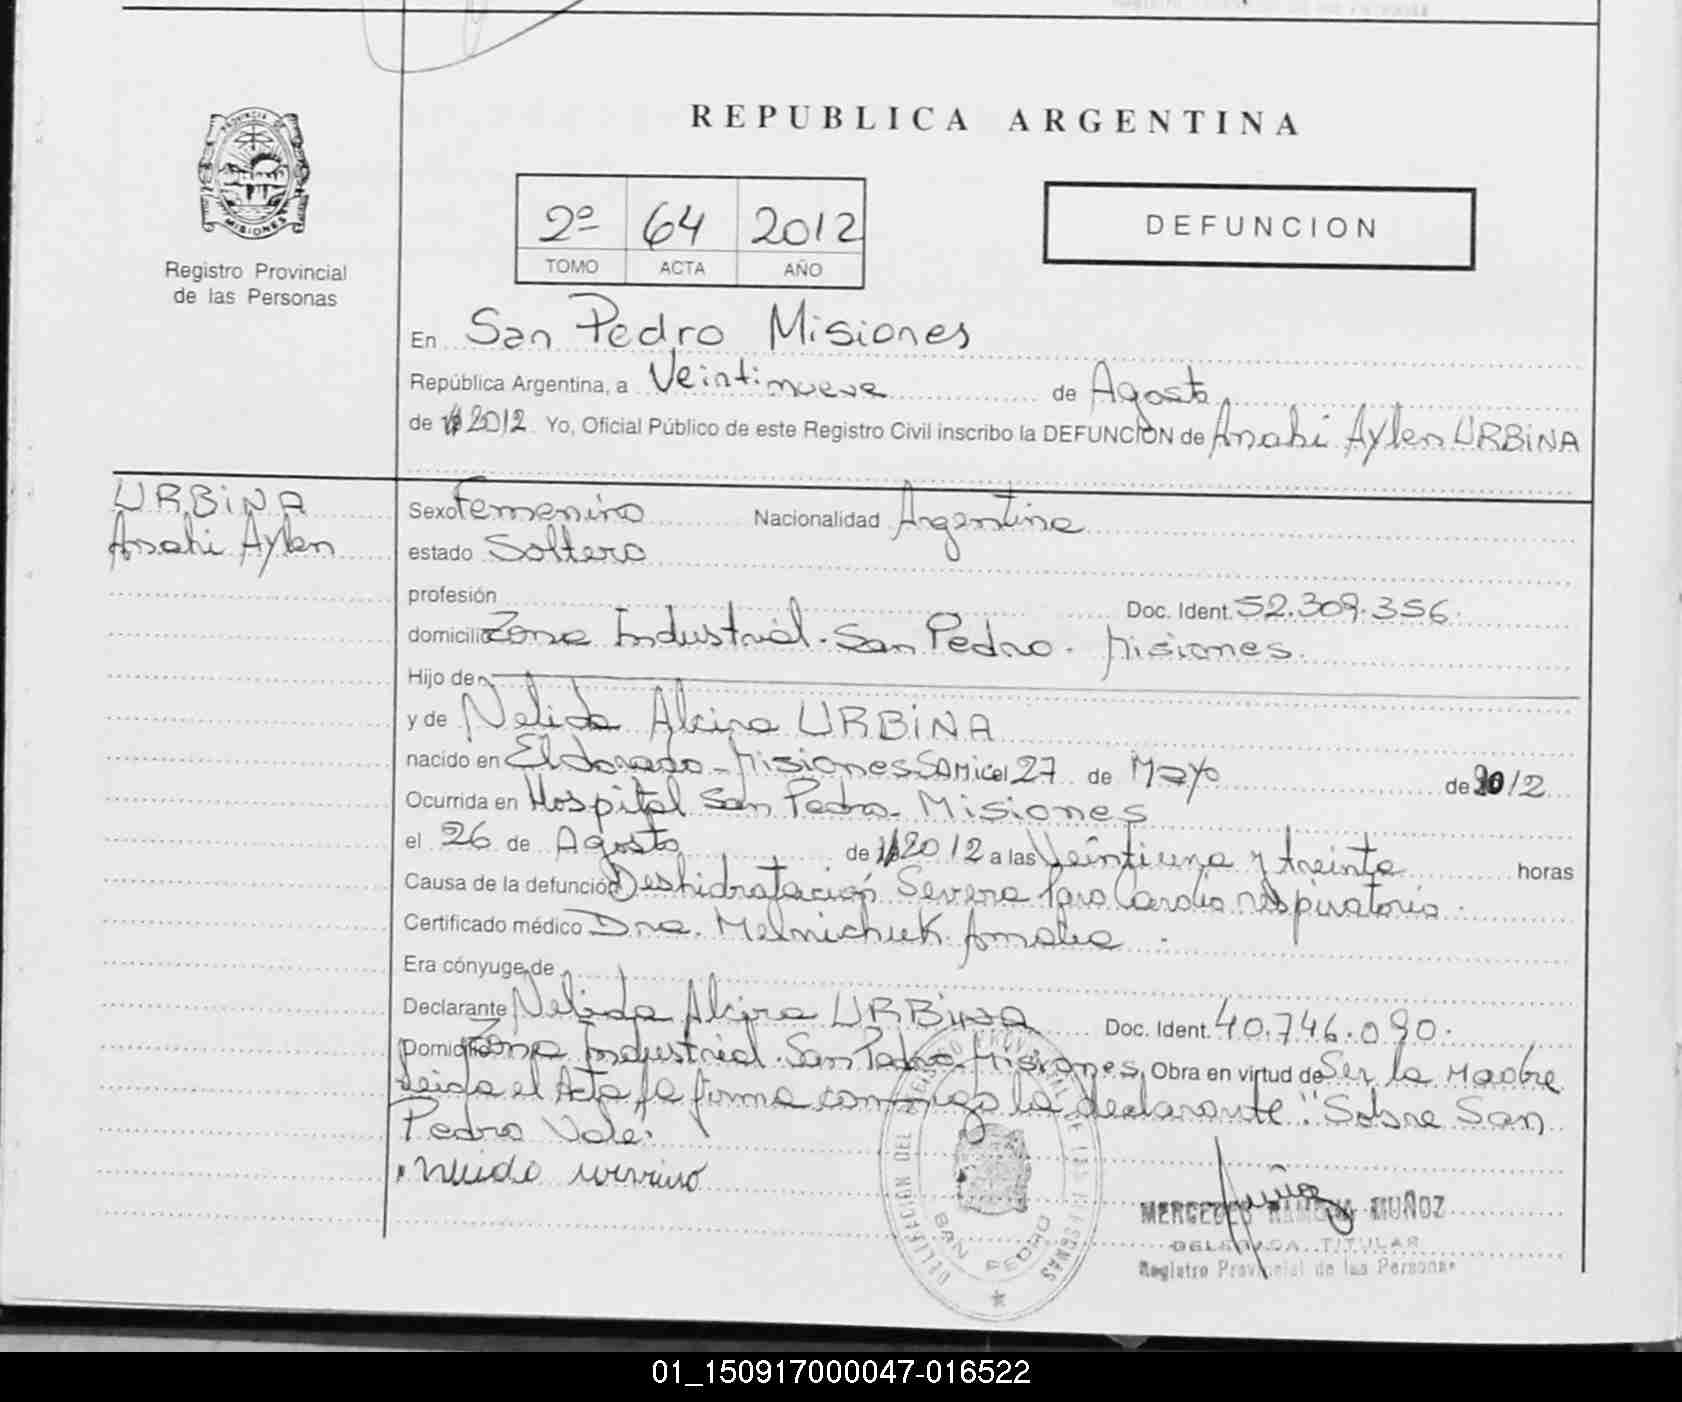 REPUBLICA ARGENTINA
PROVINCIA DE
MISIONES
Registro Provincial
de las Personas
2º 64 2012
TOMO ACTA AÑO
DEFUNCION
En San Pedro Misiones
República Argentina, a Veintinueve de Agosto
de 2012 Yo, Oficial Público de este Registro Civil inscribo la DEFUNCION de Anahi Aylen URBINA
URBINA
Anahi Aylen
Sexo Femenino Nacionalidad Argentina
estado Soltera
profesión Doc. Ident. 52.309.356.
domicilio Zona Industrial. San Pedro. Misiones.
Hijo de
y de Nelida Alcira URBINA
nacido en Eldorado - Misiones SAMic el 27 de Mayo de 2012
Ocurrida en Hospital San Pedro. Misiones
el 26 de Agosto de 2012 a las Veintiuna y treinta horas
Causa de la defunción Deshidratación Severa Paro Cardio respiratorio.
Certificado médico Dra. Melnichuk Amalia.
Era cónyuge de
Declarante Nelida Alcira URBINA Doc. Ident. 40.746.090.
Domicilio Zona Industrial. San Pedro. Misiones. Obra en virtud de Ser la Madre
leida el Acta la firma conmigo la declarante: "Sobre San
Pedro Vale.
MERCEDES RAMONA MUÑOZ
DELEGADA TITULAR
Registro Provincial de las Personas
DELEGACION DEL REGISTRO PROVINCIAL DE LAS PERSONAS
SAN PEDRO
01_150917000047-016522